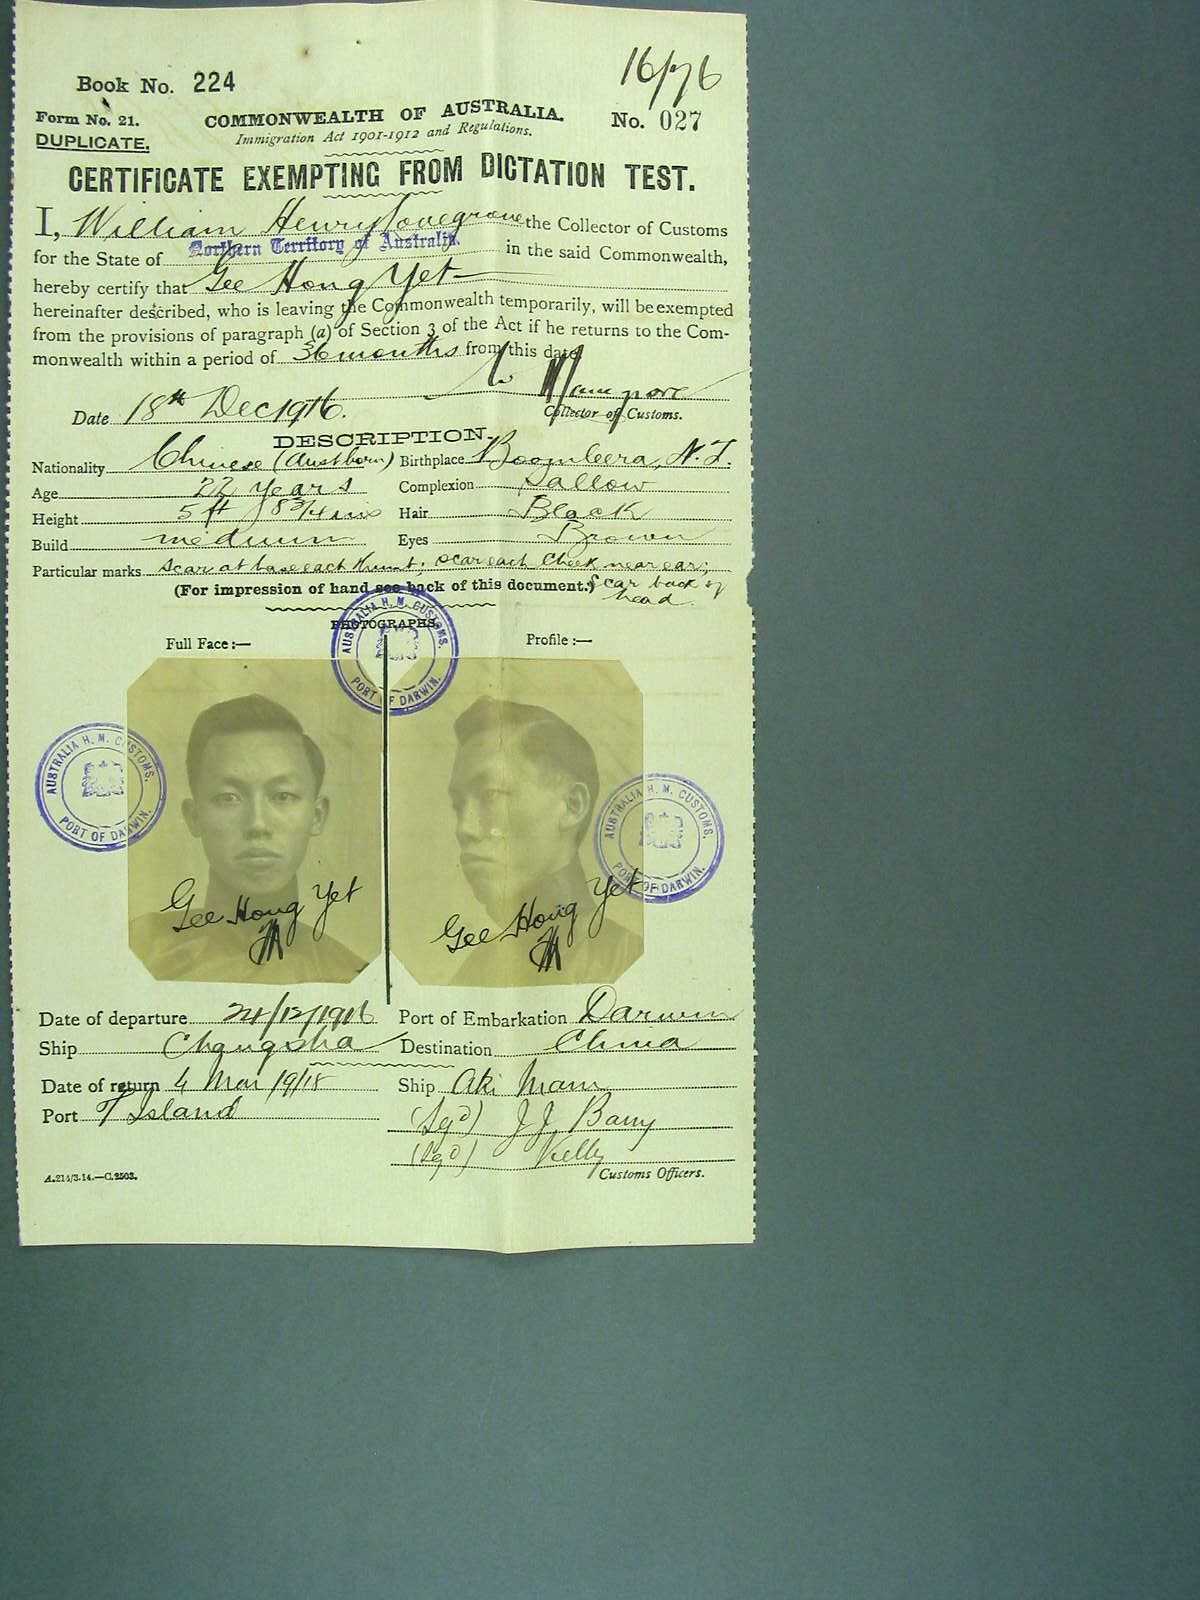 16/76
Book No. 224
Form No. 21.
COMMONWEALTH OF AUSTRALIA.
No. 027
DUPLICATE.
Immigration Act 1901-1912 and Regulations.
CERTIFICATE EXEMPTING FROM DICTATION TEST.
I, William Henry Lovegrove the Collector of Customs
for the State of Northern Territory of Australia. in the said Commonwealth,
hereby certify that Gee Hong Yet
hereinafter described, who is leaving the Commonwealth temporarily, will be exempted
from the provisions of paragraph (a) of Section 3 of the Act if he returns to the Com-
monwealth within a period of 36 months from this date
Date 18th Dec 1916.
Collector of Customs.
DESCRIPTION.
Nationality Chinese (Aust born) Birthplace N.T.
Age 22 years Complexion Sallow
Height 5 ft 8 3/4 ins Hair Black
Build medium Eyes Brown
Particular marks Scar at base each thumb; scar each cheek near ear;
(For impression of hand see back of this document.) Scar back of
head.
PHOTOGRAPHS.
Full Face :— Profile :—
AUSTRALIA H. M. CUSTOMS. PORT OF DARWIN.
AUSTRALIA H. M. CUSTOMS. PORT OF DARWIN.
AUSTRALIA H. M. CUSTOMS. PORT OF DARWIN.
Gee Hong Yet
Gee Hong Yet
Date of departure 24/12/1916 Port of Embarkation Darwin
Ship Changsha Destination China
Date of return 4 Mar 1918 Ship Aki Maru
Port T Island
(Sgd) J J Barry
(Sgd) Kelly
A.214/3.14.—C.2503.
Customs Officers.